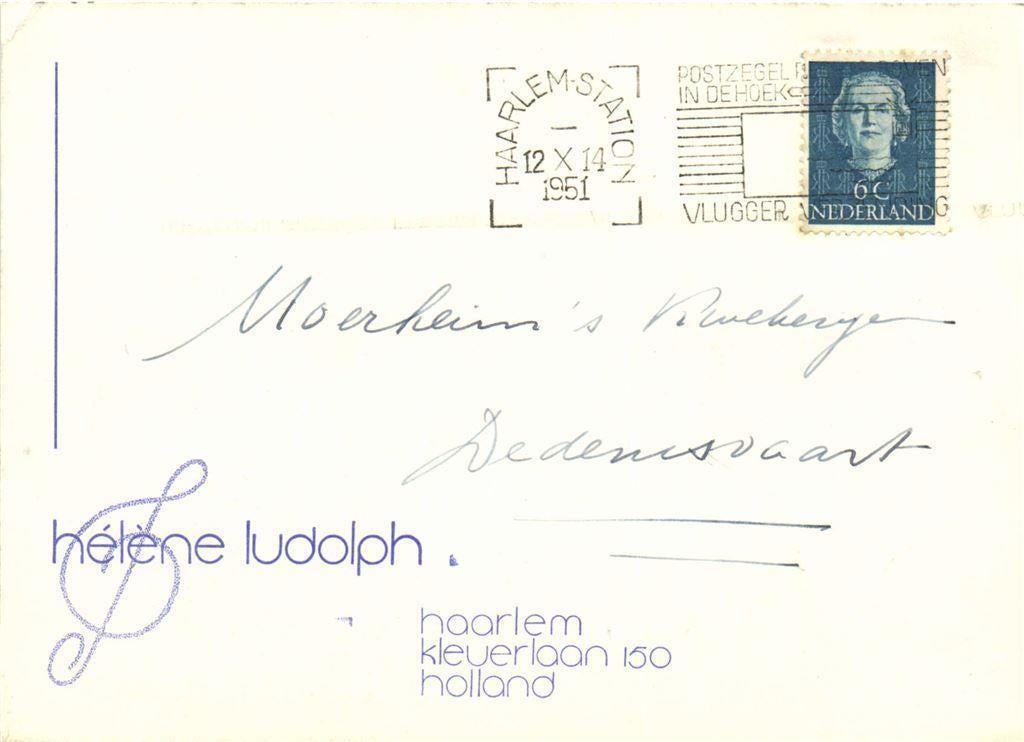 HAARLEM-STATION
12 X 14
1951
POSTZEGEL
IN DE HOEK
VLUGGER
6 C
NEDERLAND
Moerheim's Kweekerijen
Dedemsvaart
hélène ludolph.
haarlem
kleverlaan 150
holland